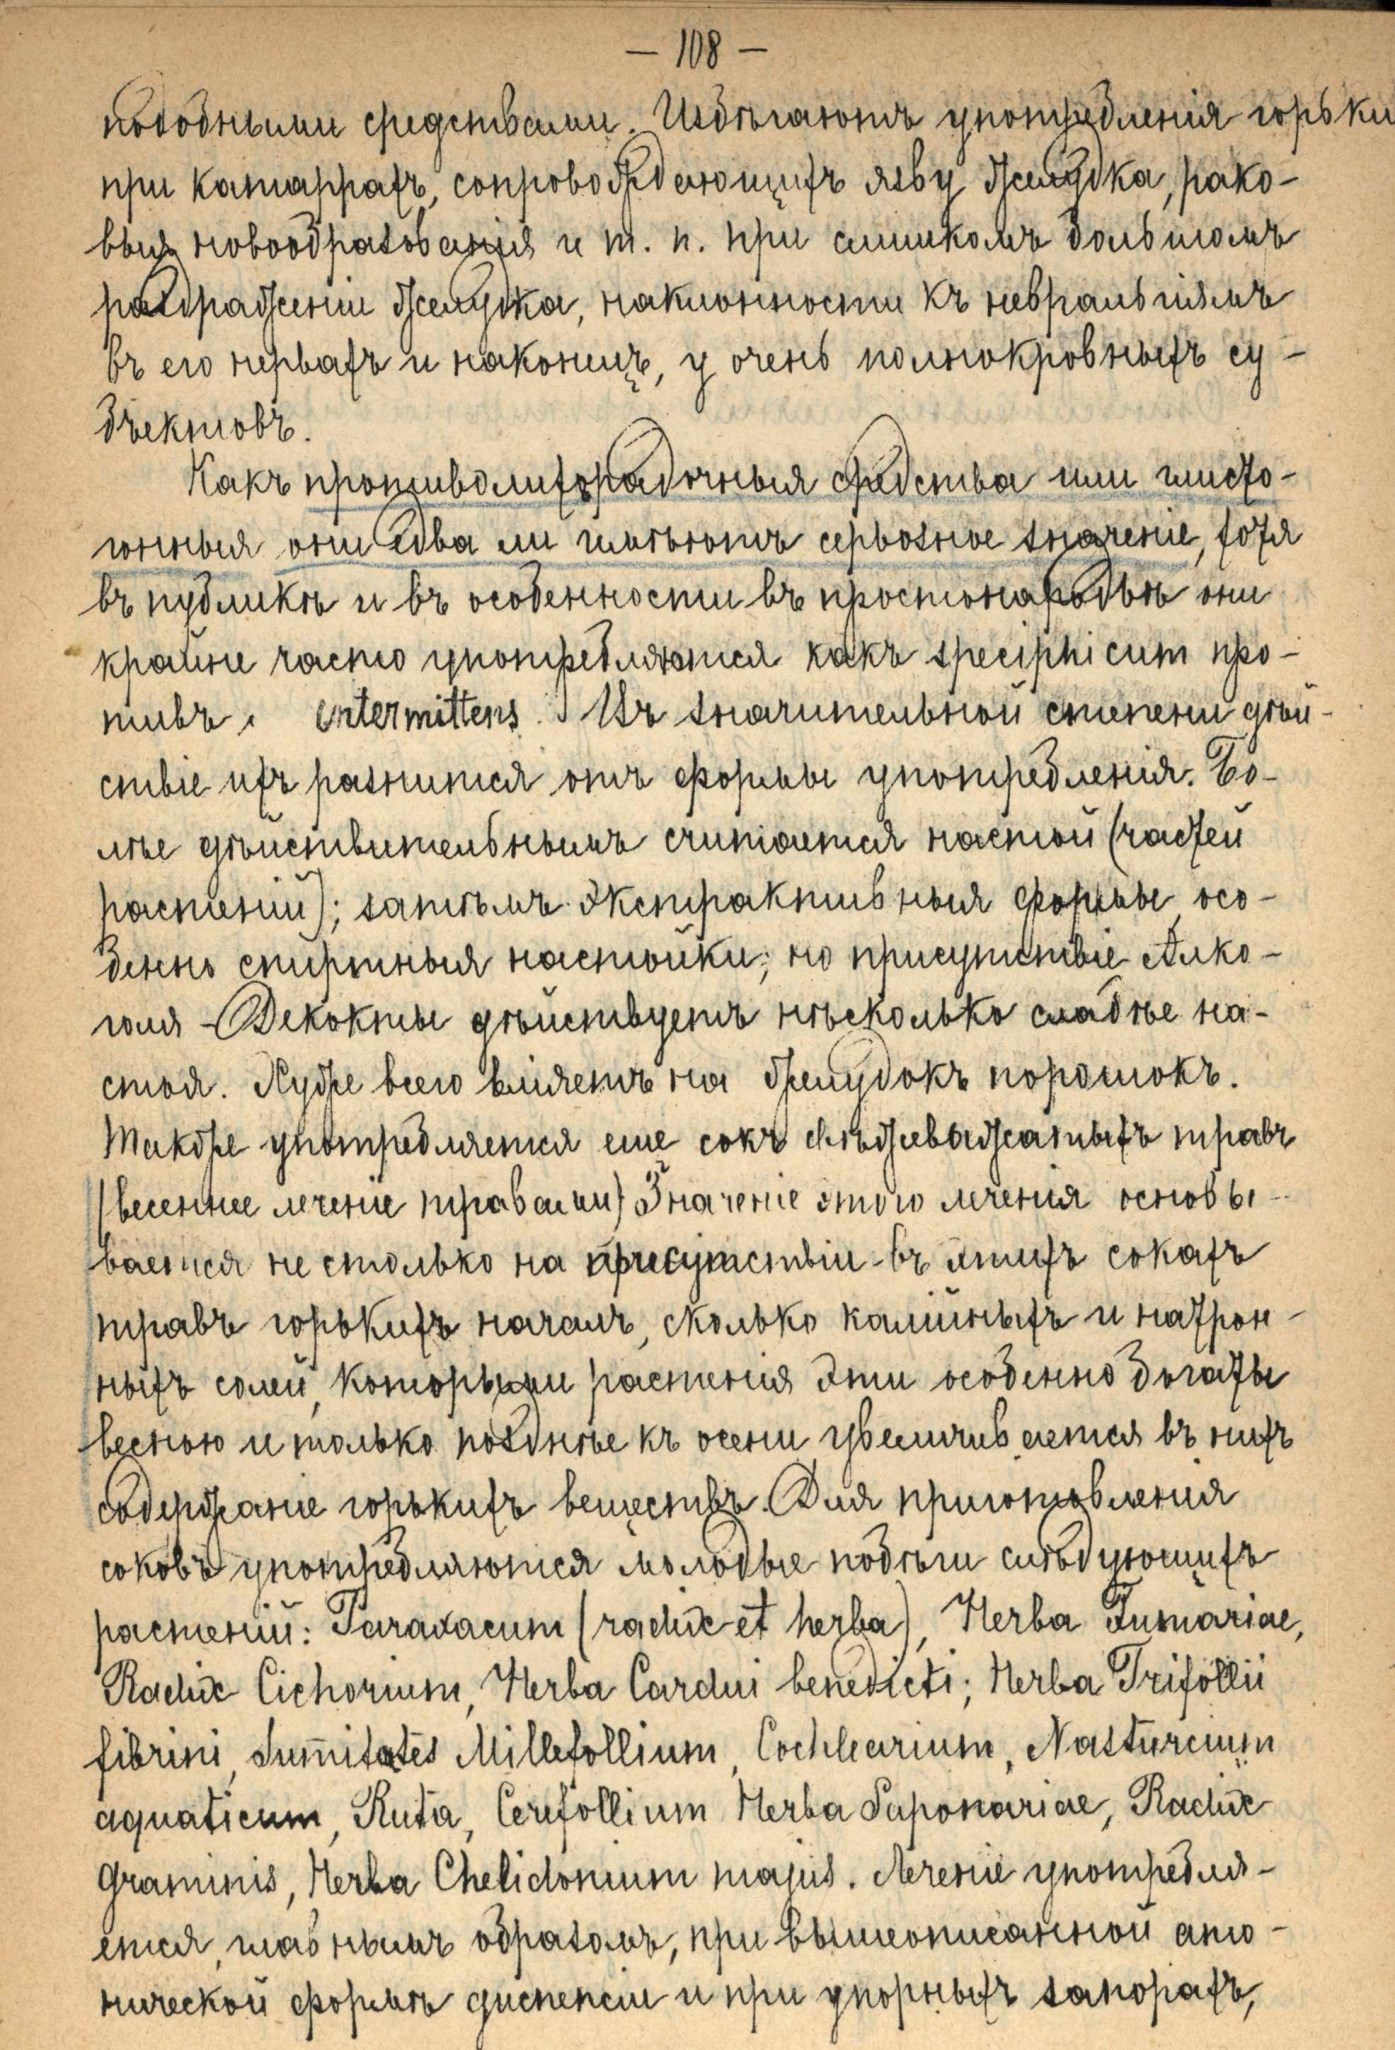 — 108 —
подобными средствами. Избѣгаютъ употребленія горьки
при катаррахъ, сопровождающихъ язву желудка, рако-
выя новообразованія и т. п. при слишкомъ большомъ
раздраженіи желудка, наклонности къ невральгіямъ
въ его нервахъ и наконецъ, у очень полнокровныхъ су-
бъектовъ.
Какъ противолихорадочныя средства или глисто-
гонныя они едва ли имѣютъ серьозное значеніе, хотя
въ публикѣ и въ особенности въ простонародьѣ они
крайне часто употребляются какъ speciphicum про-
тивъ intermittens. Въ значительной степени дѣй-
ствіе ихъ разнится отъ формы употребленія. Бо-
лѣе дѣйствительнымъ считается настой (частей
растеній); затѣмъ экстрактивныя формы, осо-
бенно спиртныя настойки; но присутствіе Алко-
голя – Декокты дѣйствуетъ нѣсколько слабѣе на-
стоя. Хуже всего вліяетъ на желудокъ порошокъ.
Также употребляется еще сокъ свѣжевыжатыхъ травъ
(весеннее леченіе травами) Значеніе этого леченія основы-
вается не столько на присутствіи въ этихъ сокахъ
травъ горькихъ началъ, сколько калійныхъ и натрон-
ныхъ солей, которыми растенія эти особенно богаты
весною и только позднѣе къ осени увеличивается въ нихъ
содержаніе горькихъ веществъ. Для приготовленія
соковъ употребляются молодые побѣги слѣдующихъ
растеній: Taraxacum (radix et herba), Herba Fumariae,
Radix Cichorium, Herba Cardui benedicti; Herba Trifollii
fibrini, Sumitates Millefollium, Cochlearium, Nasturcium
aquaticum, Ruta, Cerefollium Herba Saponariae, Radix
Graminis, Herba Chelidonium majus. Леченіе употребля-
ется, главнымъ образомъ, при вышеописанной ато-
нической формѣ диспепсіи и при упорныхъ запорахъ,